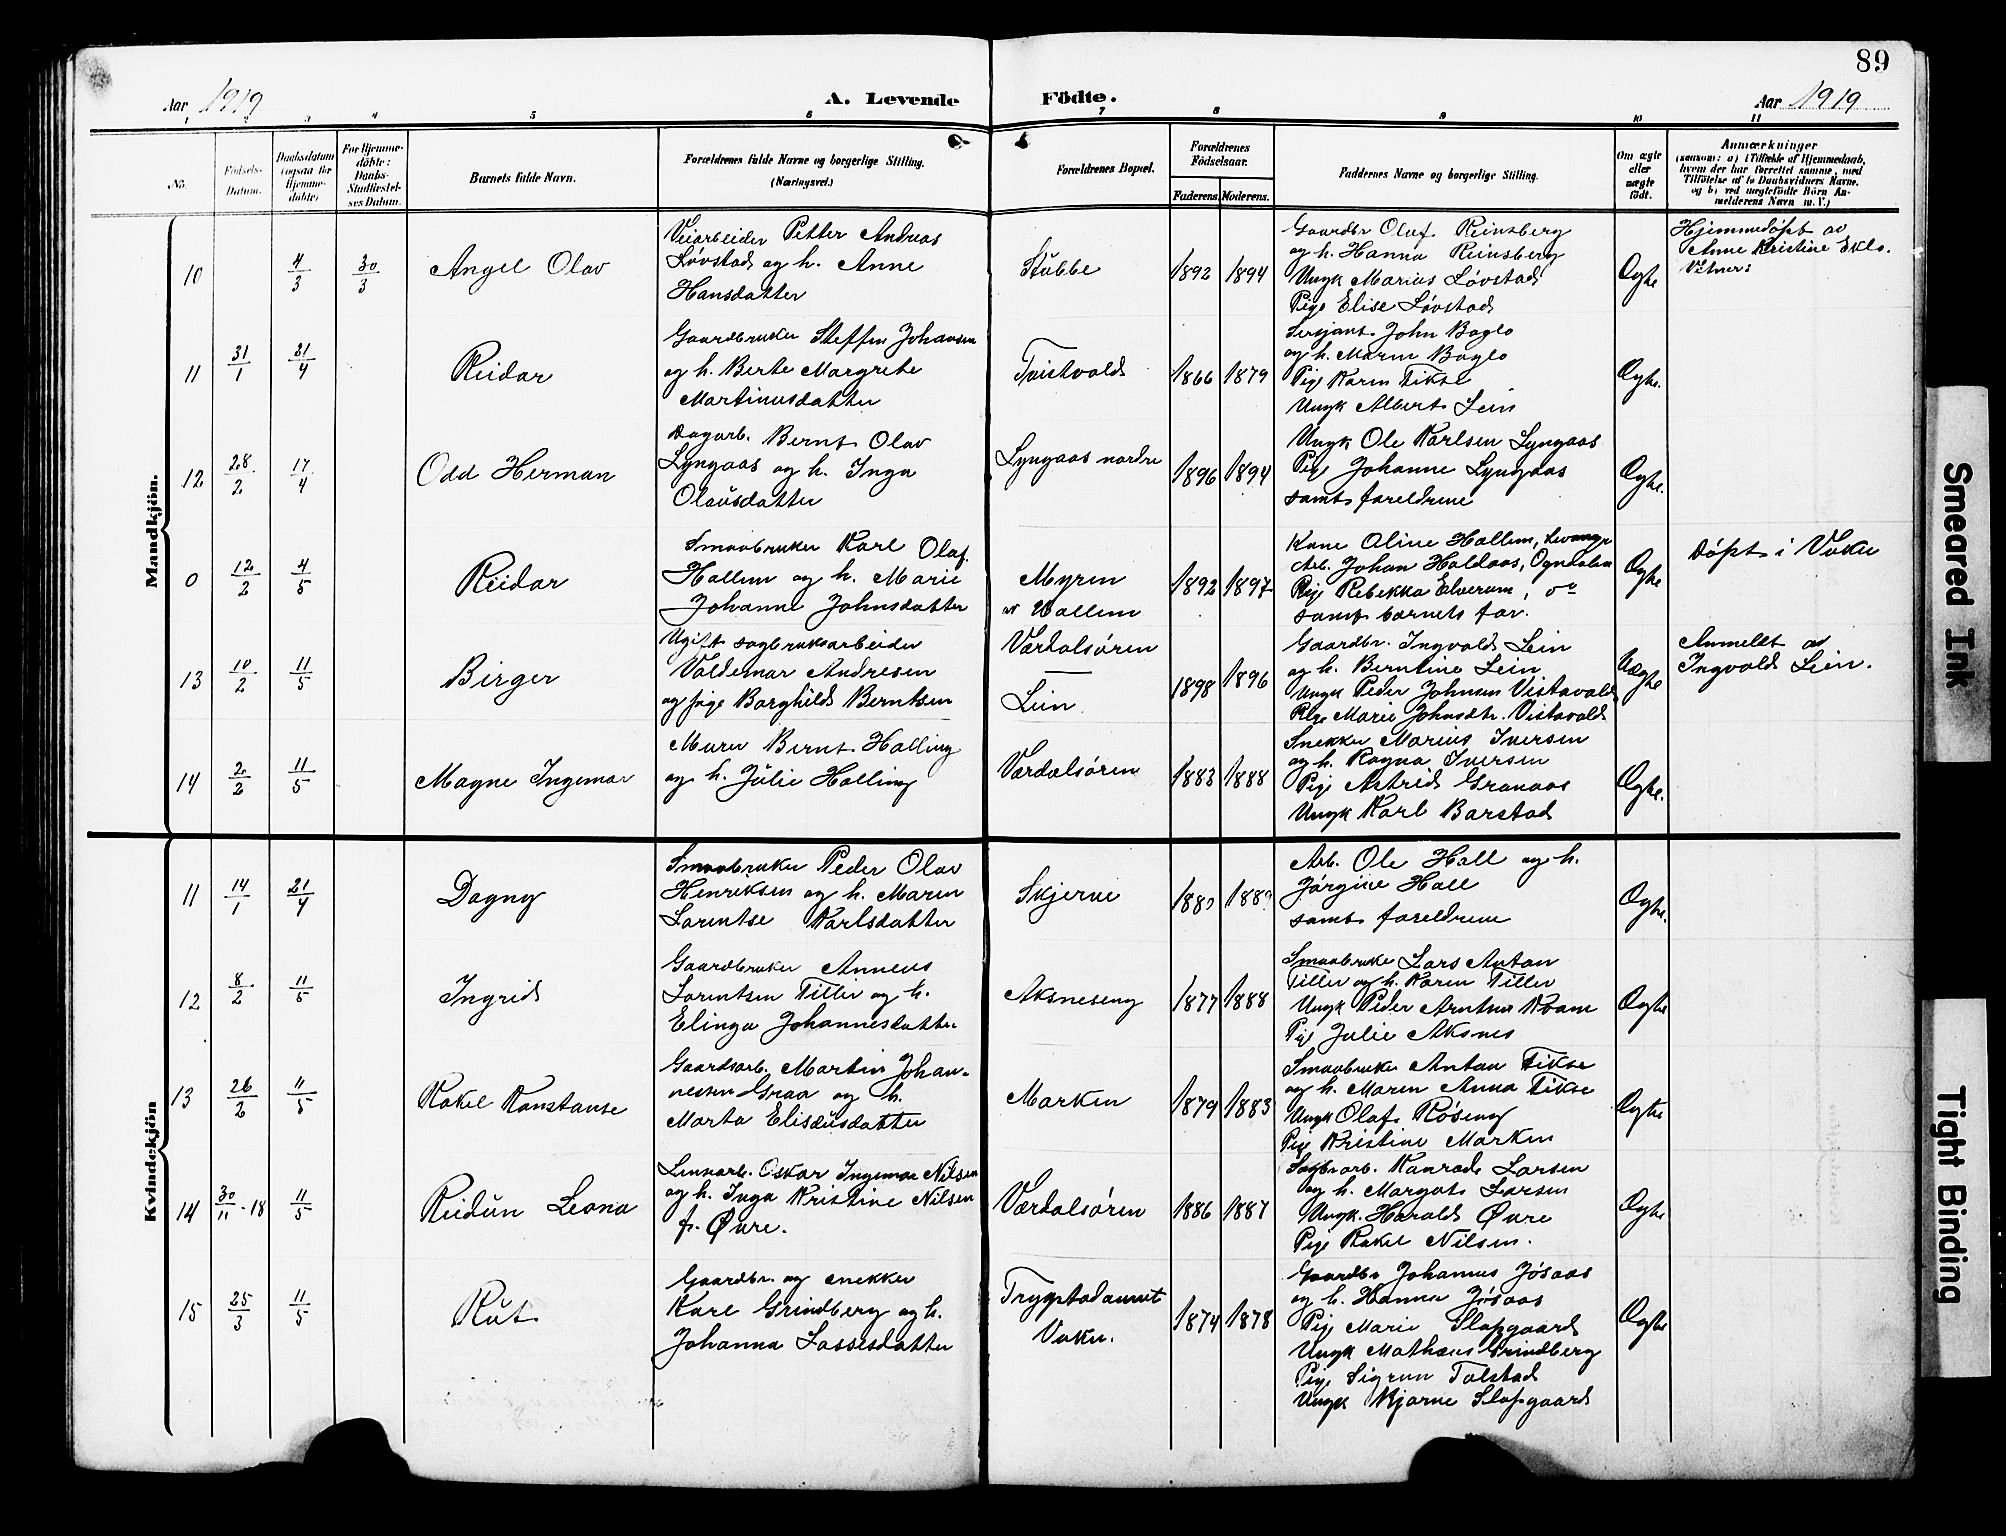 89
Aar 1919
A. Levende Födte.
Aar 1919
1 2 3 4 5 6 7 8 9 10 11
No.
Födsels-
Datum.
Daabsdatum
(ogsaa for
Hjemme-
døbte)
For Hjemme-
döbte:
Daabs-
Stadfæstel-
ses Datum.
Barnets fulde Navn.
Forældrenes fulde Navne og borgerlige Stilling.
(Næringsvei.)
Forældrenes Bopæl.
Forældrenes
Födselsaar.
Faderens. Moderens.
Faddernes Navne og borgerlige Stilling.
Om ægte
eller
uægte
födt.
Anmærkninger
(saasom: a) i Tilfælde af Hjemmedaab,
hvem der har forrettet samme, med
Tilföielse af to Daabsvidners Navne,
og b) ved uægtefödte Börn An-
melderens Navn m. V.)
Mandkjön.
10
4/3
30/3
Angel Olav
Veiarbeider Petter Andreas
Løvstad og h. Anne
Hansdatter
Stubbe
1892 1894
Gaardbr Olaf Reinsberg
og h. Hanna Reinsberg
Ungk Marius Løvstad
Pige Elise Løvstad
Ægte
Hjemmedøpt av
Anne Kristine Eklo.
Vitner:
11
31/1
21/4
Reidar
Gaardbruker Steffen Johansen
og h. Berte Margrete
Martinusdatter
Tvistvold
1866 1879
Sersjant John Baglo
og h. Maren Baglo
Pige Karen Tikse
Ungk Albert Lein
Ægte.
12
28/2
17/4
Odd Herman
Dagarb. Bernt Olav
Lyngaas og h. Inga
Olausdatter
Lyngaas nordre
1896 1894
Ungk Ole Karlsen Lyngaas
Pige Johanne Lyngaas
samt foreldrene
Ægte.
0
12/2
4/5
Reidar
Smaabruker Karl Olaf
Hallem og h. Marie
Johanne Johnsdatter
Myren
av Hallem
1892 1897
Kone Oline Hallem, Levanger
Arb. Johan Haldaas, Ogndalen
Pige Rebekka Elverum,
samt barnets far.
Ægte
Døpt i Vuku
13
10/2
11/5
Birger
Ugift sagbruksarbeider
Valdemar Andresen
og pige Borghild Berntsen
Værdalsøren
Lein
1898 1896
Gaardbr. Ingvald Lein
og h. Berntine Lein
Ungk Peder Johnsen Vistavold
Pige Marie Johnsdtr. Vistavold
Uægte
Anmeldt av
Ingvald Lein.
14
2/2
11/5
Magne Ingemar
Murer Bernt Halling
og h. Julie Halling
Værdalsøren
1883 1888
Snekker Marius Iversen
og h. Ragna Iversen
Pige Astrid Granaas
Ungk Karl Barstad
Ægte.
Kvindekjön
11
14/1
21/4
Dagny
Smaabruker Peder Olav
Henriksen og h. Maren
Lorentse Karlsdatter
Skjerve
1889
Arb. Ole Hall og h.
Jørgine Hall
samt foreldrene
Ægte.
12
8/2
11/5
Ingrid
Gaardbruker Anneus
Lorentsen Tiller og h.
Elinga Johannesdatter
Aksneseng
1877 1888
Smaabruker Lars Anton
Tiller og h. Karen Tiller
Ungk Peder Arntsen Kvam
Pige Julie Aksnes
Ægte
13
26/2
11/5
Rakel Konstanse
Gaardsarb. Martin Johan-
nessen Graa og h.
Marta Eliseusdatter
Marken
1879 1883
Smaabruker Anton Tikse
og h. Maren Anna Tikse
Ungk Olaf Røseng
Pige Kristine Marken
Ægte
14
30/11-18
11/5
Reidun Leona
Linearb. Oskar Ingemar Nilsen
og h. Inga Kristine Nilsen
f. Øvre.
Værdalsøren
1886 1887
Sagbr.arb. Konrad Larsen
og h. Margot Larsen
Ungk. Harald Øvre
Pige Rakel Nilsen.
Ægte
15
25/3
11/5
Rut
Gaardbr. og snekker
Kare Grindberg og h.
Johanna Lassesdatter
Trygstadaunet
Vuku.
1874 1878
Gaardbr Johannes Jøsaas
og h. Hanna Jøsaas
Pige Marie Slapgaard
Ungk Mathæus Grindberg
Pige Sigrun Tolstad
Ungk Bjarne Slapgaard
Ægte
Smeared Ink
Tight Binding